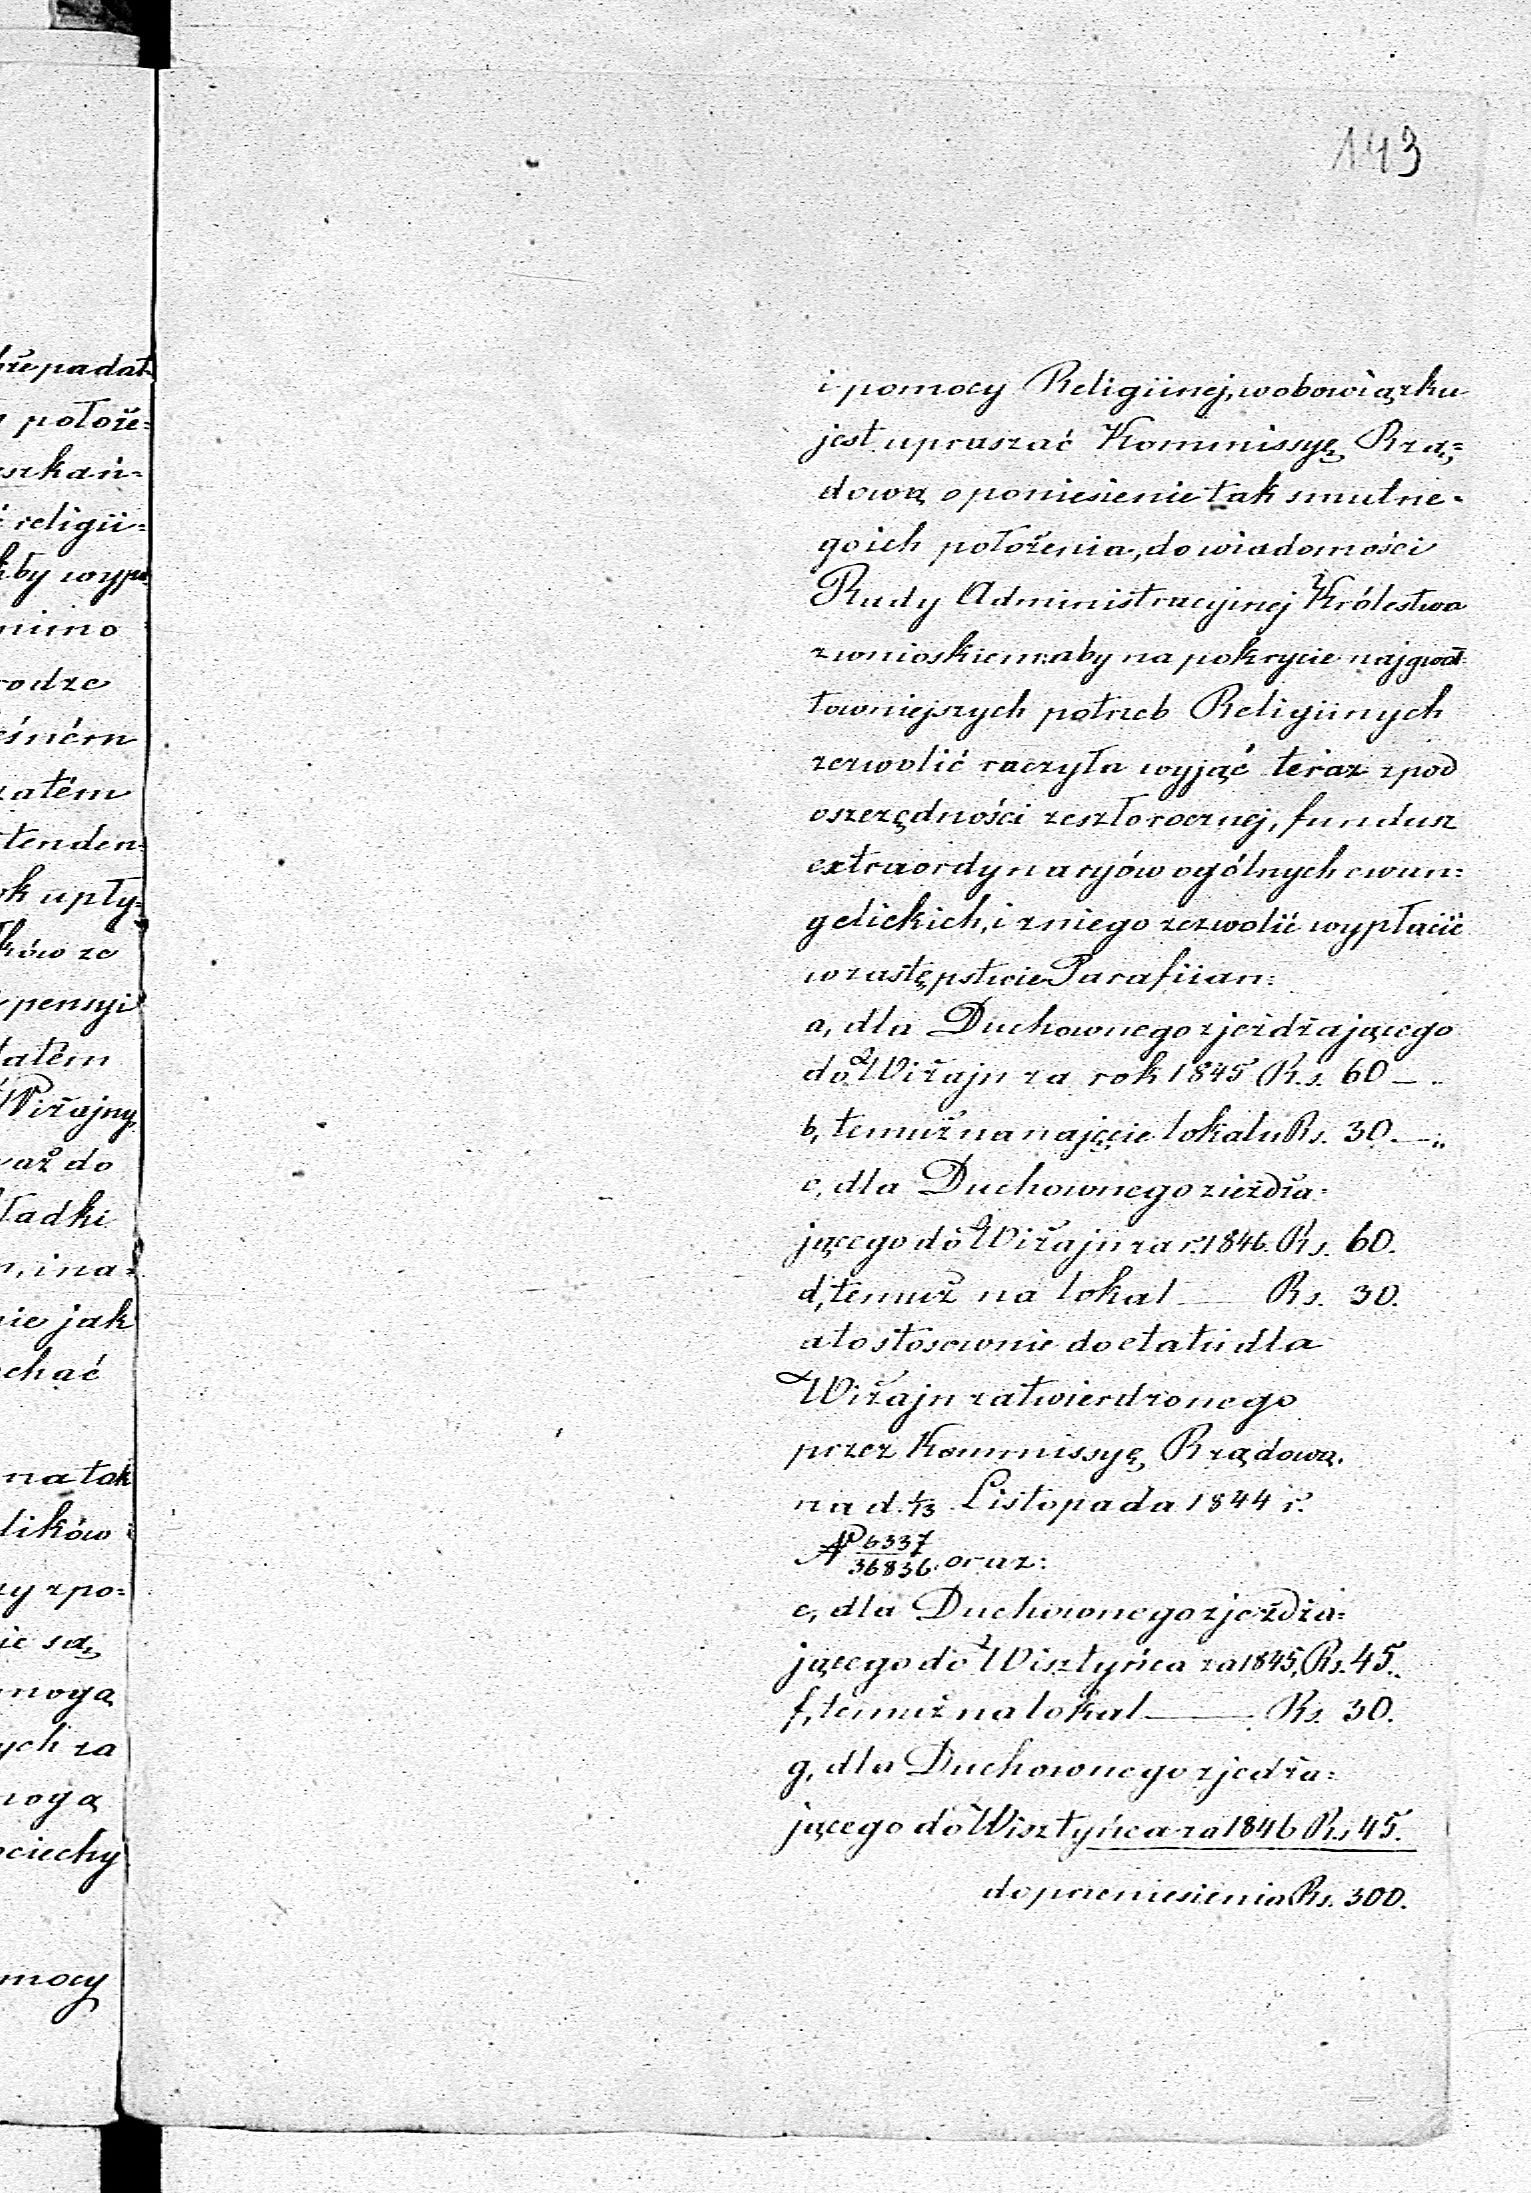 143
i pomocy Religijnej, w obowiązku
jest upraszać Kommissyę Rzą=
dową o poniesienie tak smutne=
go ich położenia, do wiadomości
Rady Administracyjnej Królestwa
z wnioskiem: aby na pokrycie najgwał=
towniejszych potrzeb Religijnych
zezwolić raczyła wyjąć teraz z pod
oszczędności zeszłorocznej, fundusz
extraordynaryów ogólnych ewan=
gelickich, i z niego zezwolić wypłacić
w zastępstwie Parafiian:
a, dla Duchownego zjeżdżającego
do Wiżajn za rok 1845 R.s. 60 — „
b, temuż na najęcie lokalu Rs. 30 — „
c, dla Duchownego zieżdża=
jącego do Wiżajn za r. 1846. Rs. 60.
d, temuż na lokal — Rs. 30.
a to stosownie do etatu dla
Wiżajn zatwierdzonego
przez Kommissyę Rządową
na d. 1/13 Listopada 1844 r.
№ 6337/36836 oraz:
e, dla Duchownego zjeżdża=
jącego do Wisztyńca za 1845, Rs. 45.
f, temuż na lokal — Rs. 30.
g, dla Duchownego zjedża=
jącego do Wisztyńca za 1846 Rs 45.
do przeniesienia Rs. 300.
położe=
religii=
mimo
pensyi
Wiżajny
aż do
, i na=
jak
na tak
z po=
są
mogą
ych za
mogą